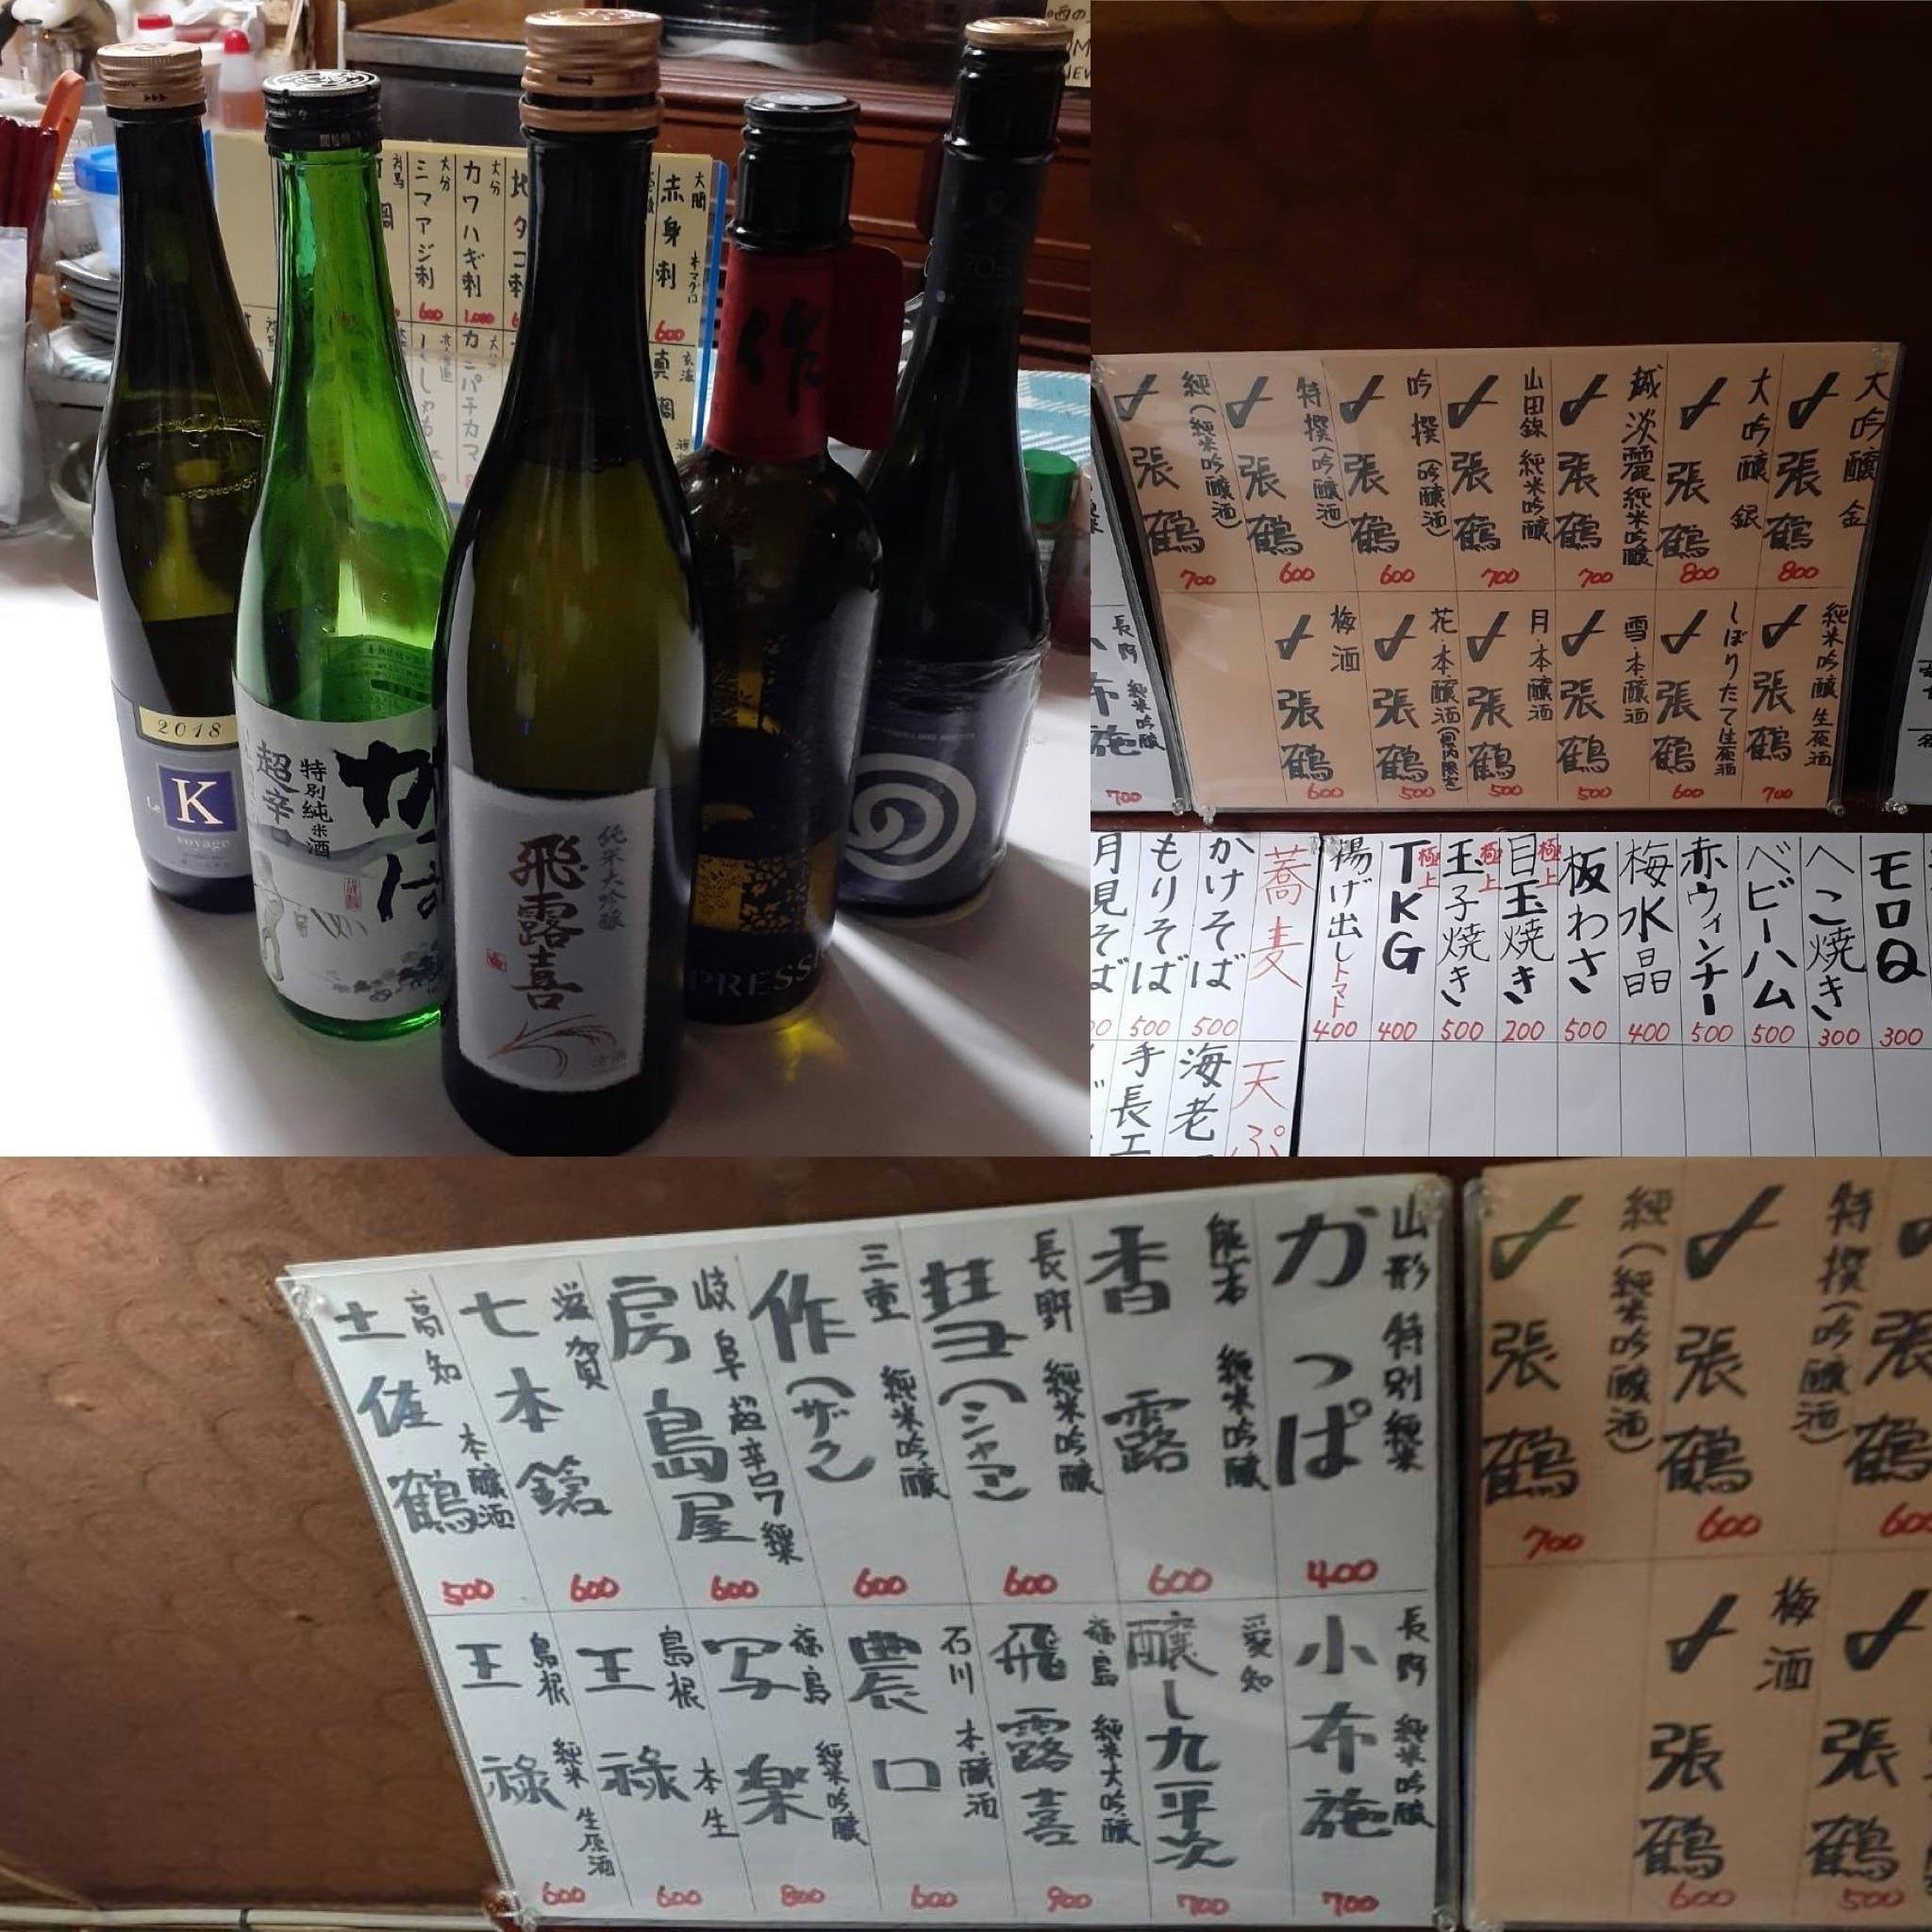 2018
K
voyage
特別純米酒
超辛口
純米大吟醸
飛露喜
清酒
作
70th
大間
赤身刺
本マグロ
600
カワハギ刺
大分
1,000
シマアジ刺
大分
600
カンパチカマ
大吟醸 金
〆張鶴
800
大吟醸 銀
〆張鶴
800
越淡麗 純米吟醸
〆張鶴
700
山田錦 純米吟醸
〆張鶴
700
吟撰(吟醸酒)
〆張鶴
600
特撰(吟醸酒)
〆張鶴
600
純(純米吟醸酒)
〆張鶴
700
純米吟醸 生原酒
〆張鶴
700
しぼりたて生原酒
〆張鶴
600
雪・本醸酒
〆張鶴
500
月・本醸酒
〆張鶴
500
花・本醸酒(県内限定)
〆張鶴
500
梅酒
〆張鶴
600
長野
純米吟醸
布施
700
モロQ
300
へこ焼き
300
ベビーハム
500
赤ウィンナー
500
梅水晶
400
板わさ
500
極上
目玉焼き
200
極上
玉子焼き
500
TKG
400
揚げ出しトマト
400
蕎麦
かけそば
500
もりそば
500
月見そば
天ぷ
海老
手長エ
山形 特別純米
かっぱ
400
熊本 純米吟醸
香露
600
長野 純米吟醸
彗(シャア)
600
三重 純米吟醸
作(ザク)
600
岐阜 超辛口7 純米
房島屋
600
滋賀
七本鎗
600
高知 本醸酒
土佐鶴
500
長野 純米吟醸
小布施
700
愛知
醸し九平次
700
福島 純米大吟醸
飛露喜
900
石川 本醸酒
農口
600
福島 純米吟醸
写楽
800
島根 本生
王祿
600
島根 純米 生原酒
王祿
600
特撰(吟醸酒)
〆張鶴
600
純(純米吟醸酒)
〆張鶴
700
張鶴
500
梅酒
〆張鶴
600